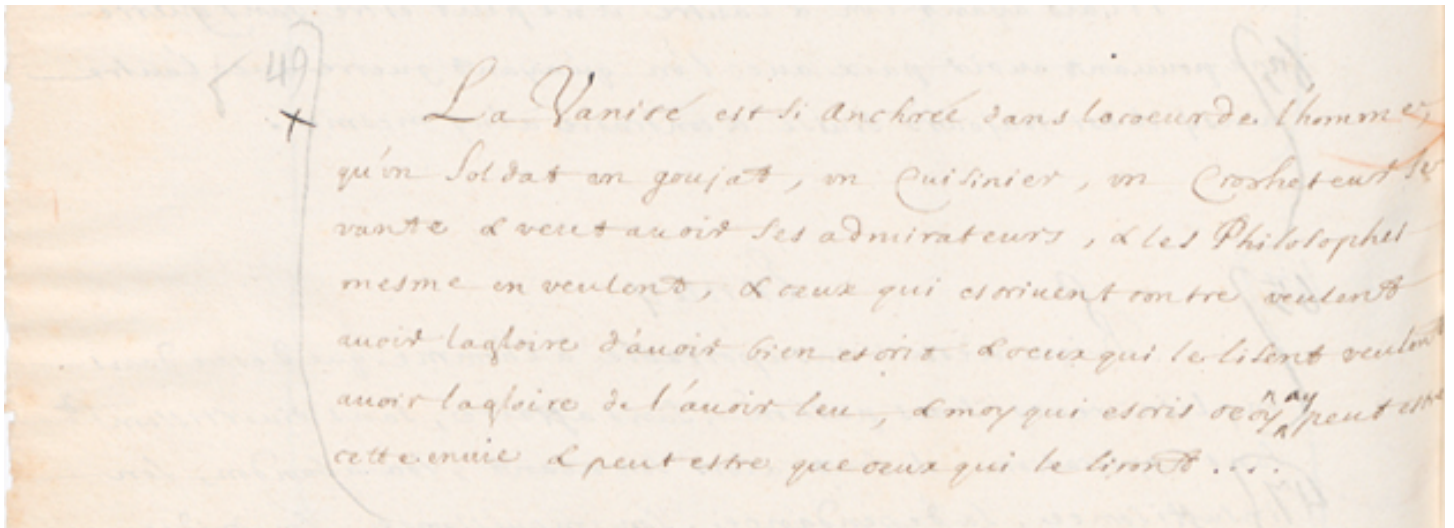 49
+ La Vanité est si Anchrée dans le coeur de l'homme,
qu'vn soldat vn goujat, vn Cuisinier, vn Crocheteur se
vante & veut avoir ses admirateurs, & les Philosophes
mesme en veulent, & ceux qui escrivent contre veulent
avoir la gloire d'avoir bien escrit & ceux qui le lisent veulent
avoir la gloire de l'avoir leu, & moy qui escris cecy n'ay peut estre
cette envie & peut estre que ceux qui le liront ...